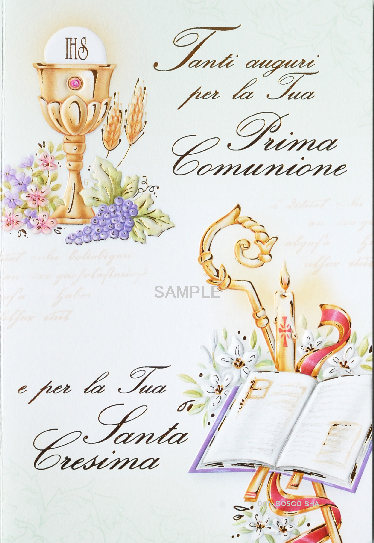 IHS
Tanti auguri
per la Tua
Prima
Comunione
SAMPLE
e per la Tua
Santa
Cresima